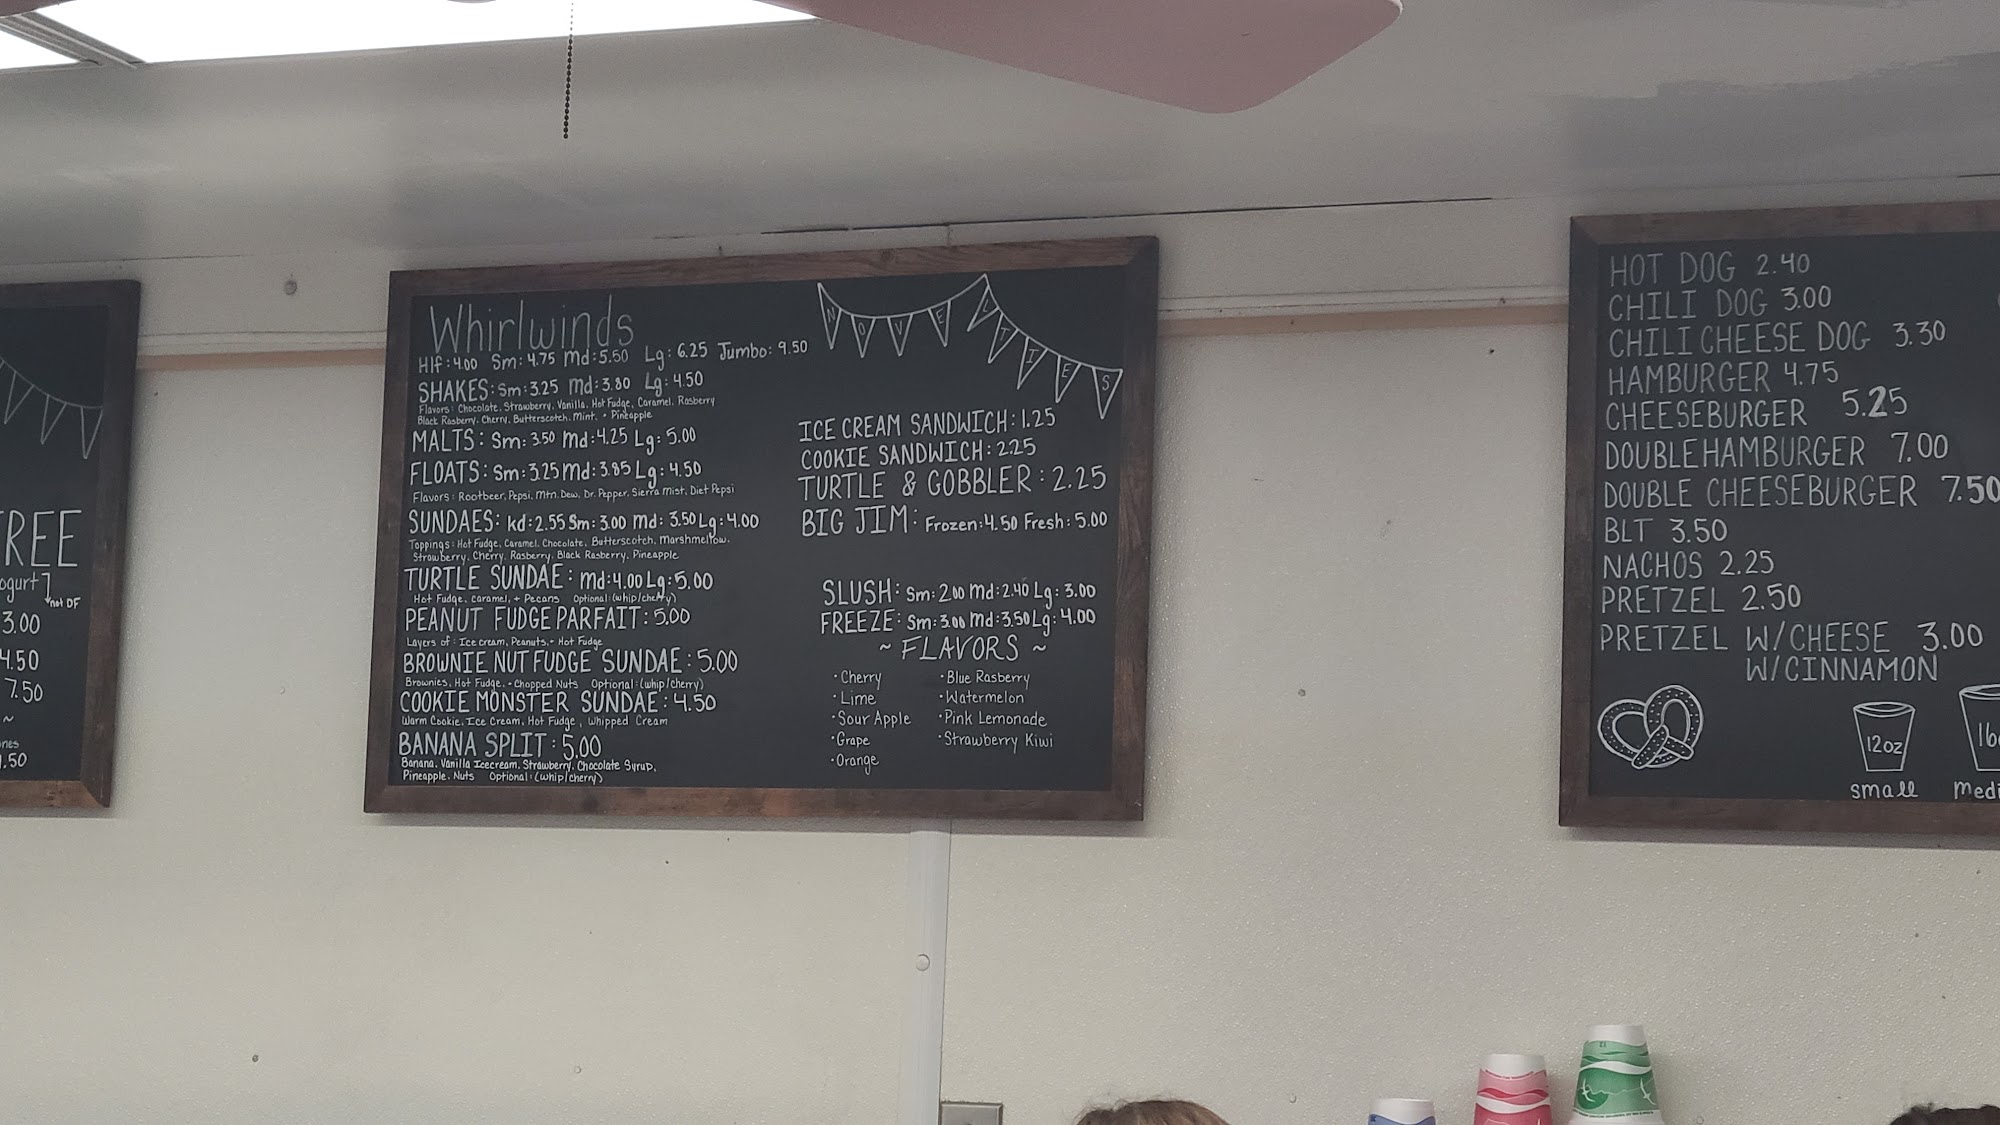 REE
ogurt
not DF
3.00
4.50
7.50
~
nes
.50
Whirlwinds
Hlf: 4.00 Sm: 4.75 Md: 5.50 Lg: 6.25 Jumbo: 9.50
SHAKES: Sm: 3.25 Md: 3.80 Lg: 4.50
Flavors: Chocolate, Strawberry, Vanilla, Hot Fudge, Caramel, Rasberry
Black Rasberry, Cherry, Butterscotch, Mint, + Pineapple
MALTS: Sm: 3.50 Md: 4.25 Lg: 5.00
FLOATS: Sm: 3.25 Md: 3.85 Lg: 4.50
Flavors: Rootbeer, Pepsi, Mtn. Dew, Dr. Pepper, Sierra Mist, Diet Pepsi
SUNDAES: kd: 2.55 Sm: 3.00 Md: 3.50 Lg: 4.00
Toppings: Hot Fudge, Caramel, Chocolate, Butterscotch, Marshmellow,
Strawberry, Cherry, Rasberry, Black Rasberry, Pineapple
TURTLE SUNDAE: Md: 4.00 Lg: 5.00
Hot Fudge, Caramel, + Pecans Optional: (whip/cherry)
PEANUT FUDGE PARFAIT: 5.00
Layers of: Ice cream, Peanuts, + Hot Fudge
BROWNIE NUT FUDGE SUNDAE: 5.00
Brownies, Hot Fudge, + Chopped Nuts Optional: (whip/cherry)
COOKIE MONSTER SUNDAE: 4.50
Warm Cookie, Ice Cream, Hot Fudge, Whipped Cream
BANANA SPLIT: 5.00
Banana, Vanilla Icecream, Strawberry, Chocolate Syrup,
Pineapple, Nuts Optional: (whip/cherry)
NOVELTIES
ICE CREAM SANDWICH: 1.25
COOKIE SANDWICH: 2.25
TURTLE & GOBBLER: 2.25
BIG JIM: Frozen: 4.50 Fresh: 5.00
SLUSH: Sm: 2.00 Md: 2.40 Lg: 3.00
FREEZE: Sm: 3.00 Md: 3.50 Lg: 4.00
~ FLAVORS ~
• Cherry
• Lime
• Sour Apple
• Grape
• Orange
• Blue Rasberry
• Watermelon
• Pink Lemonade
• Strawberry Kiwi
HOT DOG 2.40
CHILI DOG 3.00
CHILI CHEESE DOG 3.30
HAMBURGER 4.75
CHEESEBURGER 5.25
DOUBLE HAMBURGER 7.00
DOUBLE CHEESEBURGER 7.50
BLT 3.50
NACHOS 2.25
PRETZEL 2.50
PRETZEL W/CHEESE 3.00
W/CINNAMON
12oz
small
16
medi